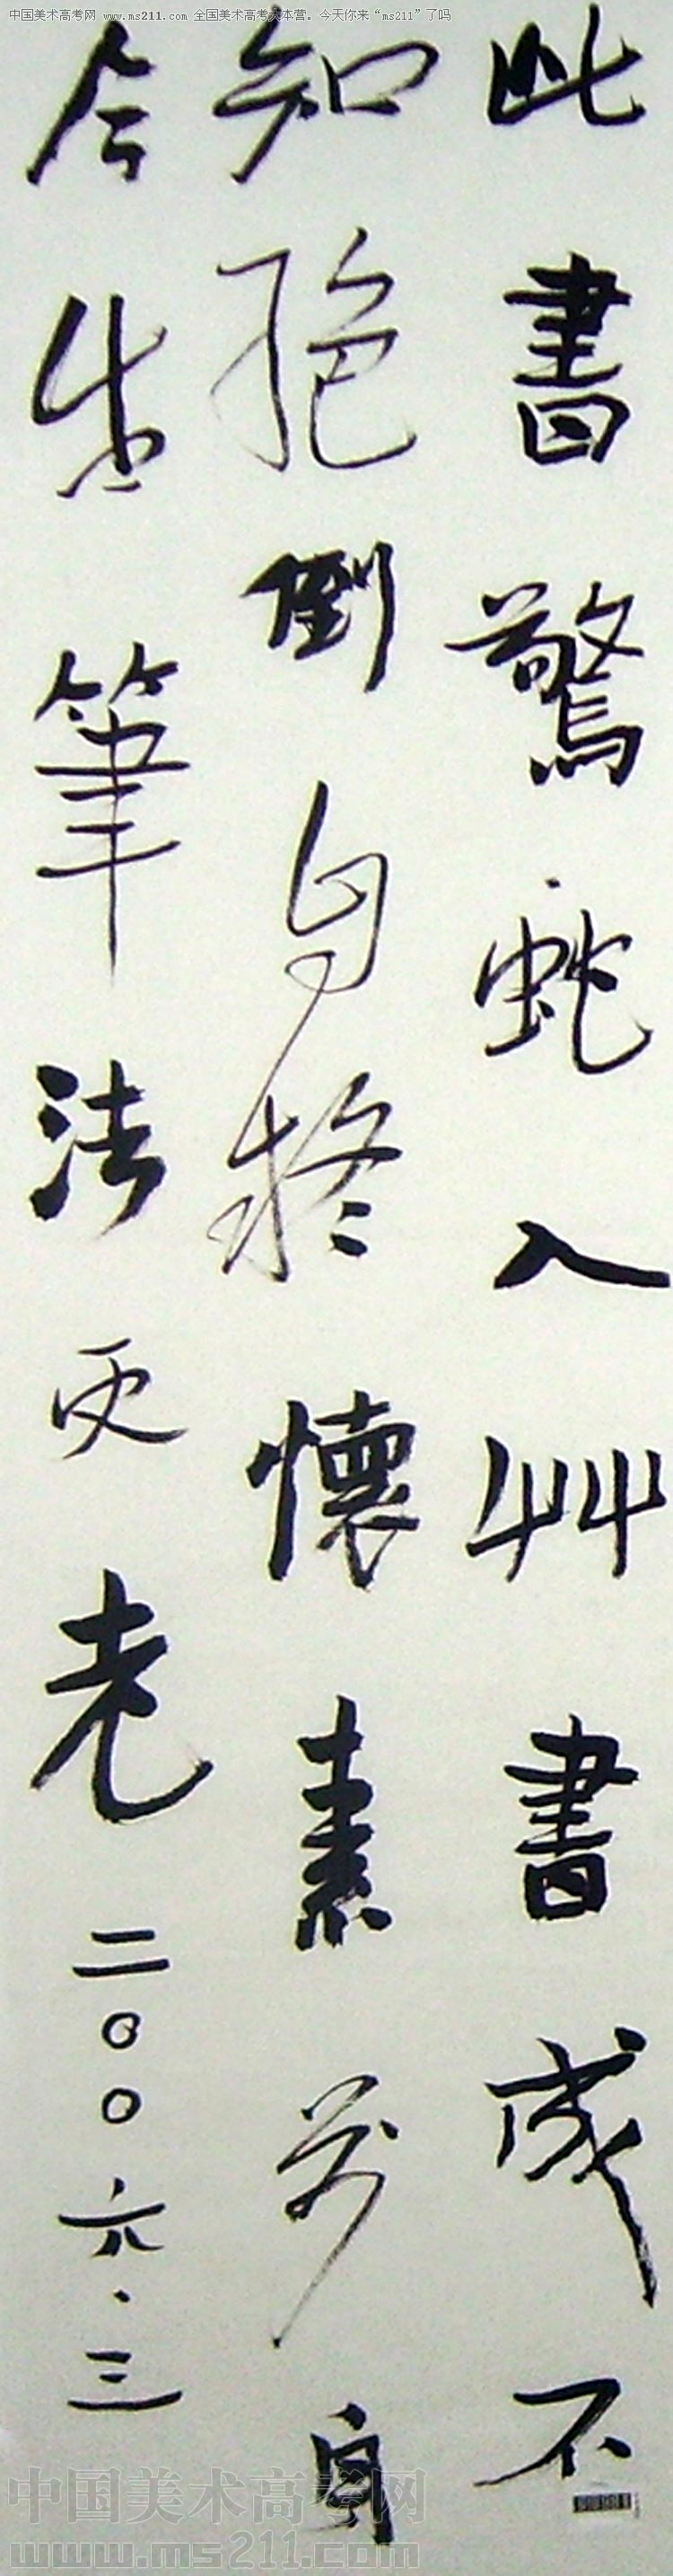 中国美术高考网 www.ms211.com 全国美术高考大本营。今天你来“ms211”了吗
此書驚蛇入艸書成不
知絕倒自疑懷素前身
今生筆法更老 二〇〇六.三
中国美术高考网
www.ms211.com